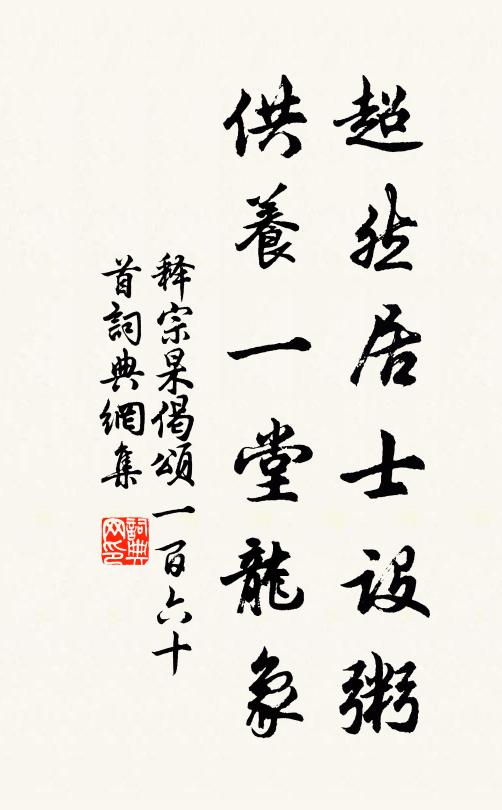 超然居士设粥
供養一堂龍象
释宗杲偈頌一百六十
首詞典網集
詞典
网印